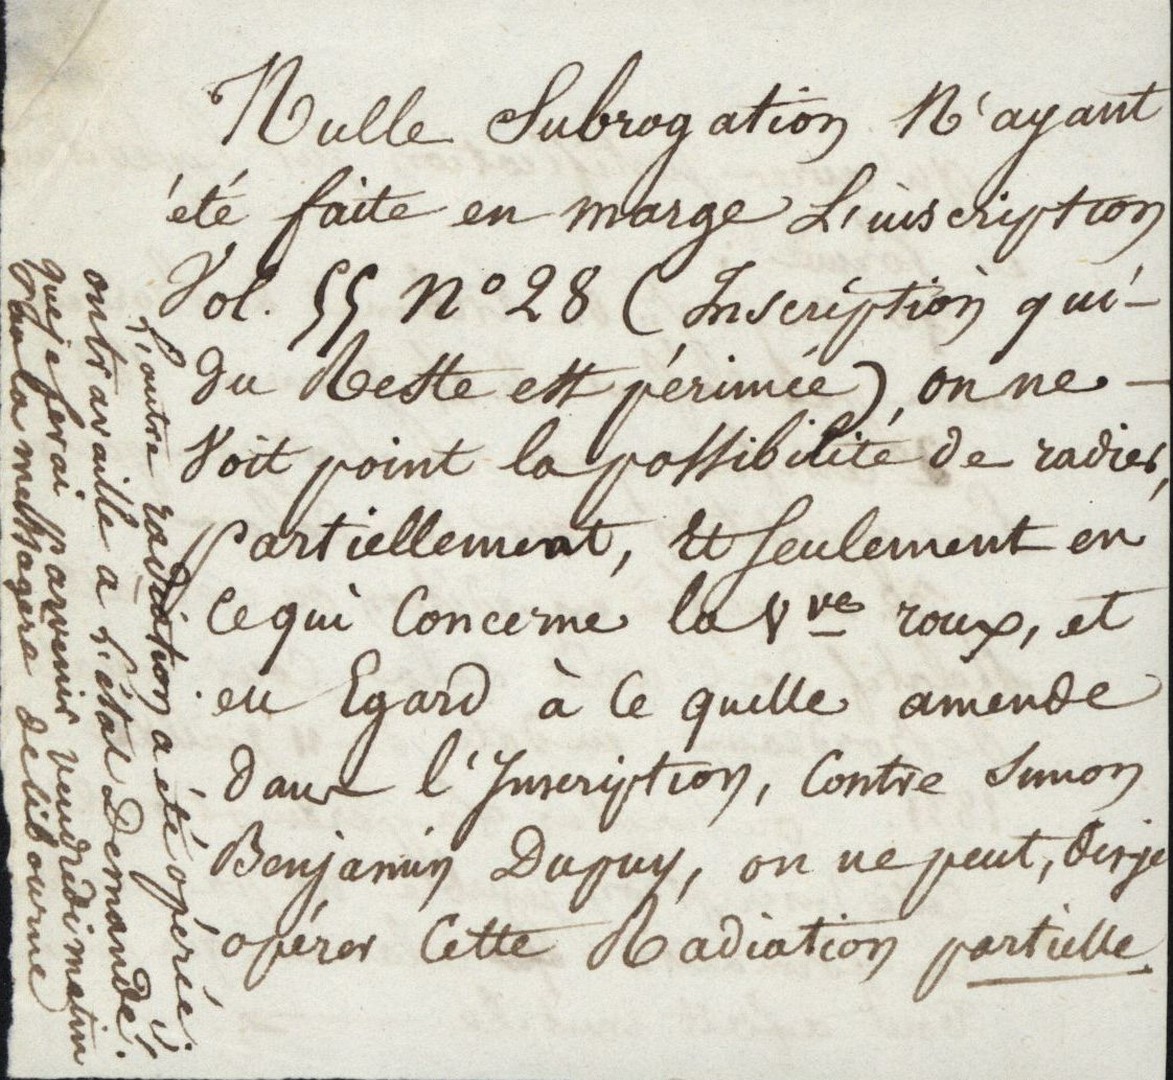 Nulle Subrogation N'ayant
été faite en marge L'inscription
Vol. 55 N° 28 (Inscription qui -
Du Reste est périmée), on ne -
Voit point la possibilité de radier,
partiellement, Et seulement en
Ce qui Concerne la Vve roux, et
eu Egard à Ce quelle amende
Dans l'Inscription, Contre Simon
Benjamin Dupuy, on ne peut, Disje
opérer Cette Radiation partielle
L'autre radiation a été opérée;
on travaille a L'état Demandé;
que je ferai parvenir vendredi matin
la messagère de libourne